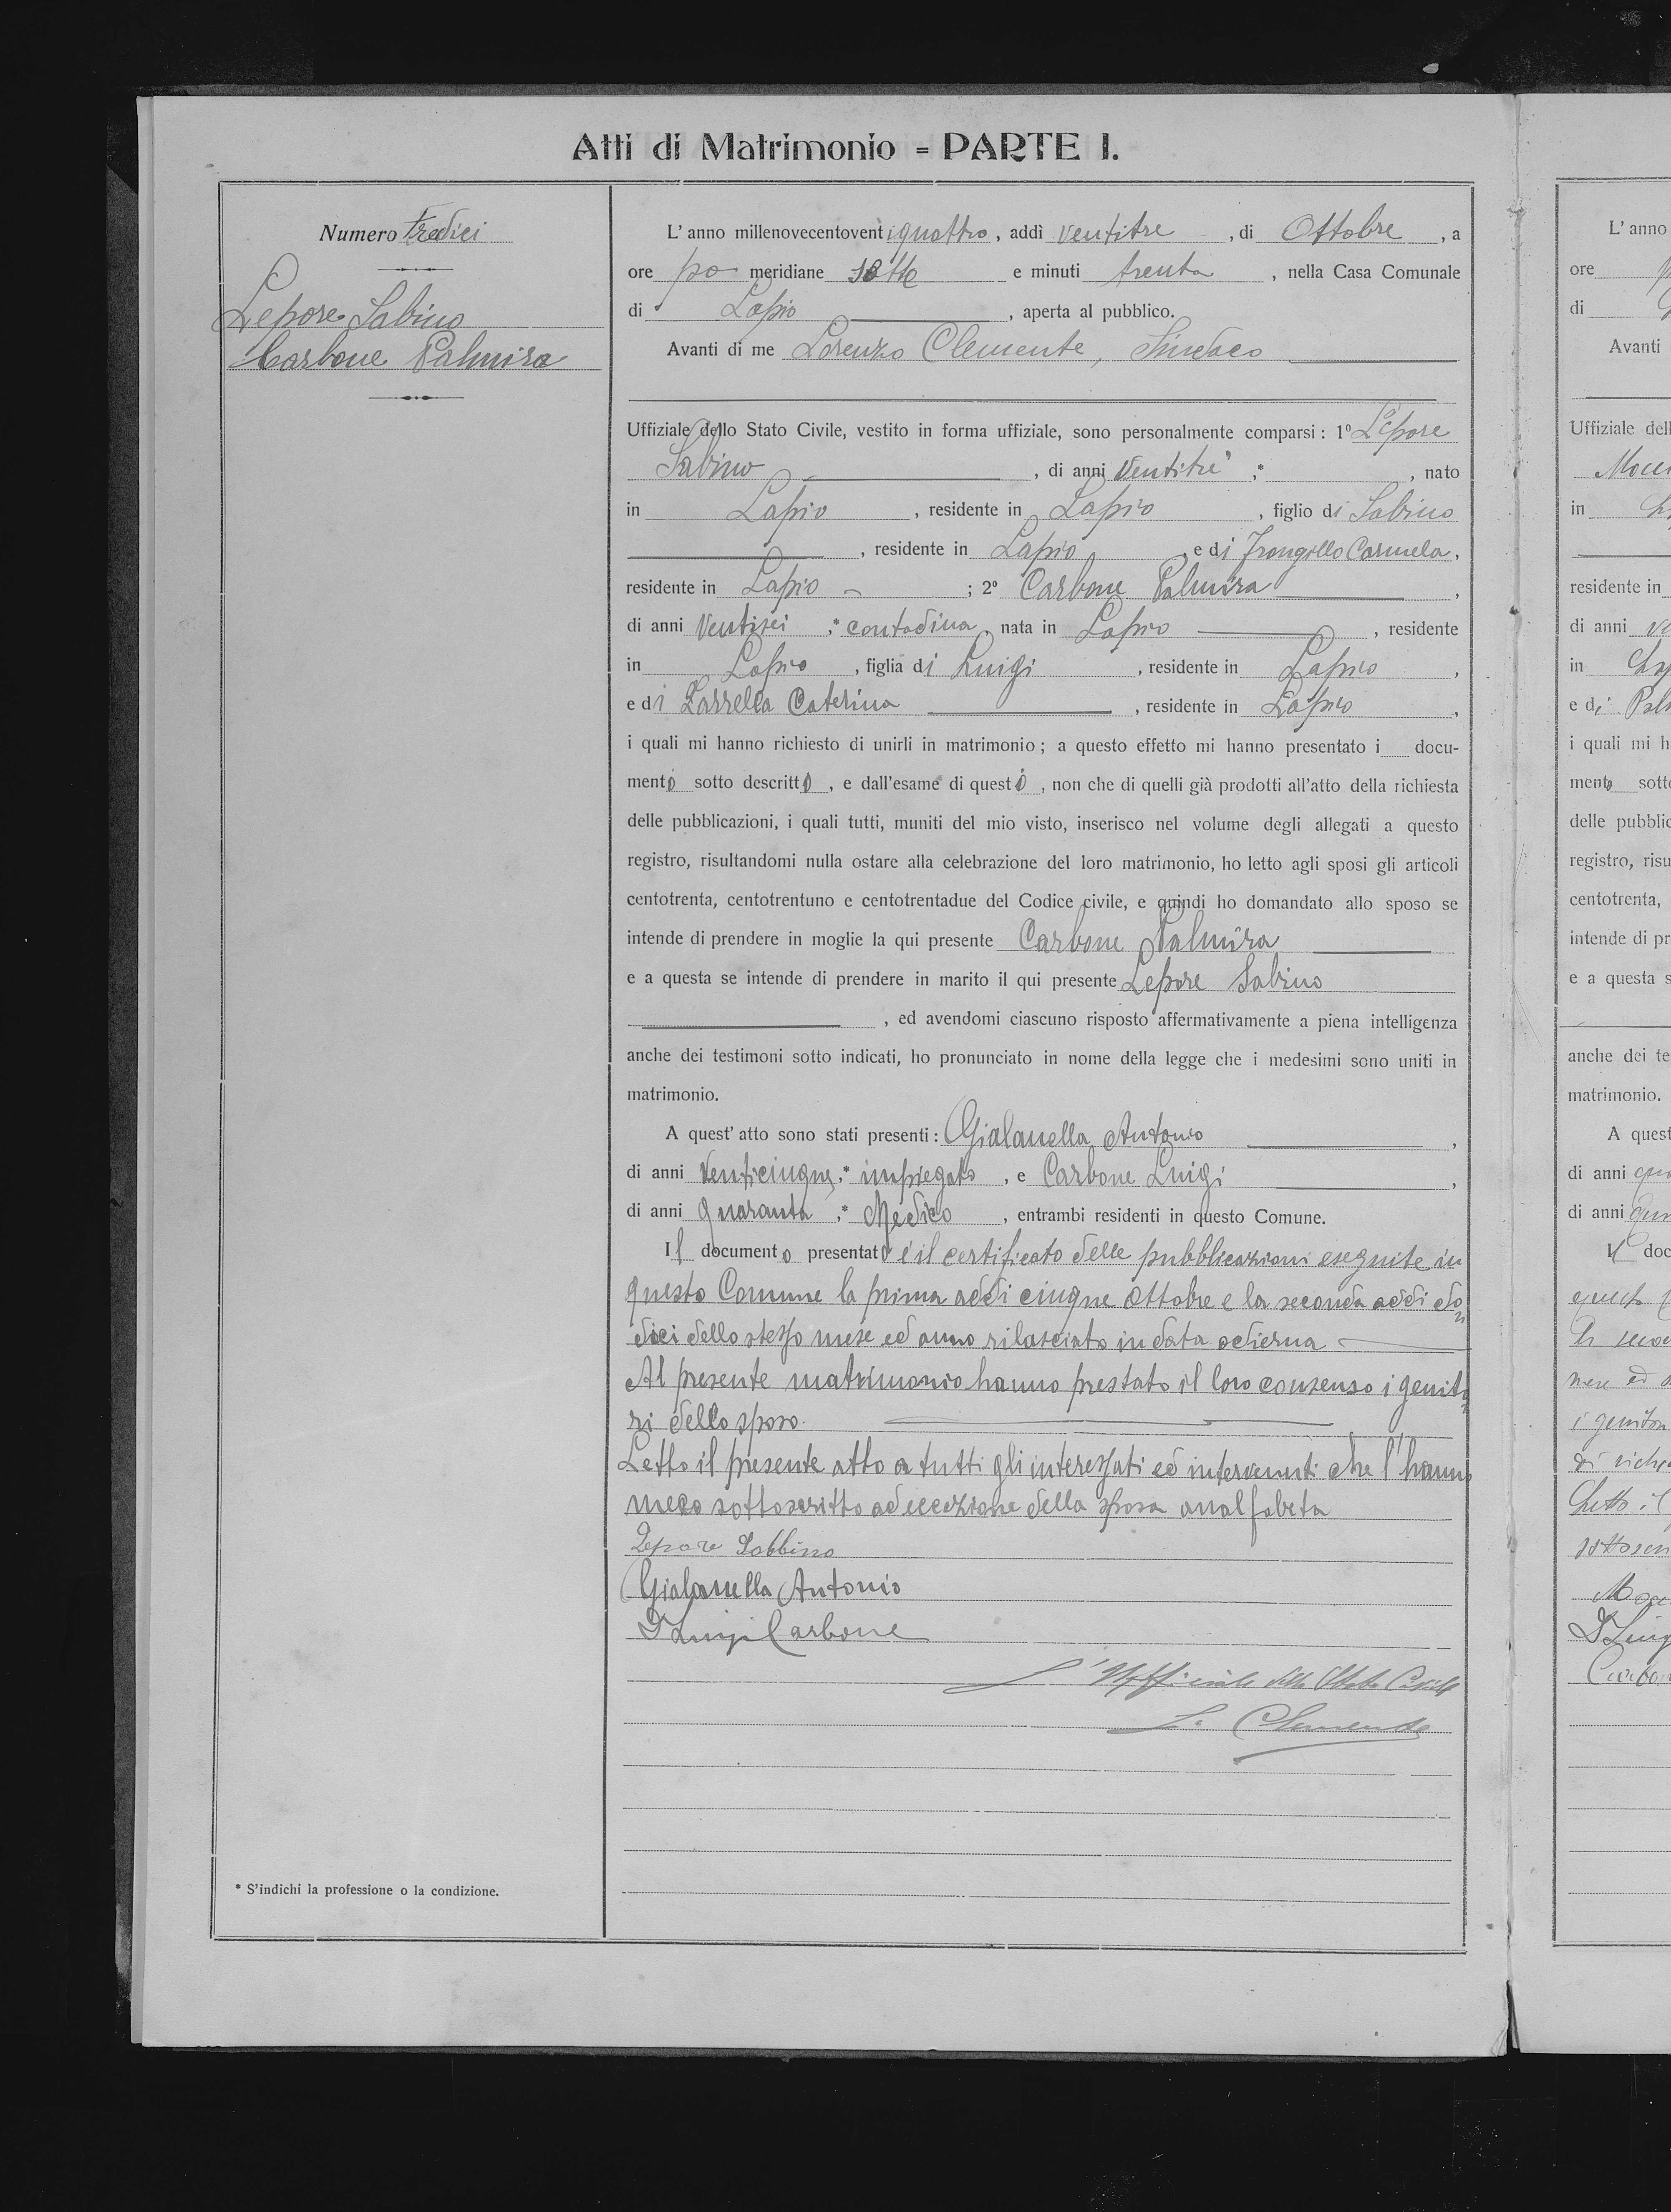 Atti di Matrimonio = PARTE I.
Numero tredici
Lepore Sabino
Carbone Palmira
* S'indichi la professione o la condizione.
L'anno millenovecentoventiquattro, addì ventitre, di Ottobre, a
ore po meridiane sette e minuti trenta, nella Casa Comunale
di Lapio, aperta al pubblico.
Avanti di me Lorenzo Clemente, Sindaco
Uffiziale dello Stato Civile, vestito in forma uffiziale, sono personalmente comparsi: 1º Lepore
Sabino, di anni Ventitrè ;* , nato
in Lapio, residente in Lapio, figlio di Sabino
, residente in Lapio, e di Frongillo Carmela,
residente in Lapio ; 2º Carbone Palmira ,
di anni Ventisei ;* contadina, nata in Lapio , residente
in Lapio, figlia di Luigi , residente in Lapio ,
e di Zarrella Caterina , residente in Lapio ,
i quali mi hanno richiesto di unirli in matrimonio; a questo effetto mi hanno presentato i docu-
mento sotto descritto, e dall'esame di questo, non che di quelli già prodotti all'atto della richiesta
delle pubblicazioni, i quali tutti, muniti del mio visto, inserisco nel volume degli allegati a questo
registro, risultandomi nulla ostare alla celebrazione del loro matrimonio, ho letto agli sposi gli articoli
centotrenta, centotrentuno e centotrentadue del Codice civile, e quindi ho domandato allo sposo se
intende di prendere in moglie la qui presente Carbone Palmira
e a questa se intende di prendere in marito il qui presente Lepore Sabino
, ed avendomi ciascuno risposto affermativamente a piena intelligenza
anche dei testimoni sotto indicati, ho pronunciato in nome della legge che i medesimi sono uniti in
matrimonio.
A quest'atto sono stati presenti: Gialanella Antonio ,
di anni Venticinque ;* impiegato, e Carbone Luigi ,
di anni Quaranta ;* Medico, entrambi residenti in questo Comune.
Il documento presentato è il certificato delle pubblicazioni eseguite in
questo Comune la prima addi cinque Ottobre e la seconda addi do
dici dello stesso mese ed anno rilasciato in data odierna
Al presente matrimonio hanno prestato il loro consenso i genito
ri dello sposo.
Letto il presente atto a tutti gli interessati ed intervenuti che l'hanno
meco sottoscritto ad eccezione della sposa analfabeta
Lepore Sabbino
Gialanella Antonio
Dr Luigi Carbone
L'Ufficiale dello Stato Civile
L. Clemente
L'anno
ore
di
Avanti
Uffiziale dell
in
residente in
di anni
in
e di
i quali mi h
mento sotto
delle pubblic
registro, risu
centotrenta,
intende di pr
e a questa s
anche dei te
matrimonio.
A quest
di anni
di anni
Il doc